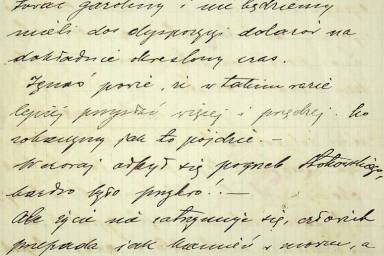 gazoliny i nie będziemy
mieli do dyspozycji dolarów na
dokładnie określony czas.
Ignaś powie, że w takim razie
lepiej przysłać więcej i prędzej. No
zobaczymy jak to pójdzie. —
Wczoraj odbył się pogrzeb
bardzo było przykro! —
Ale życie nie zatrzymuje się, człowiek
przepada jak kamień w morzu, a